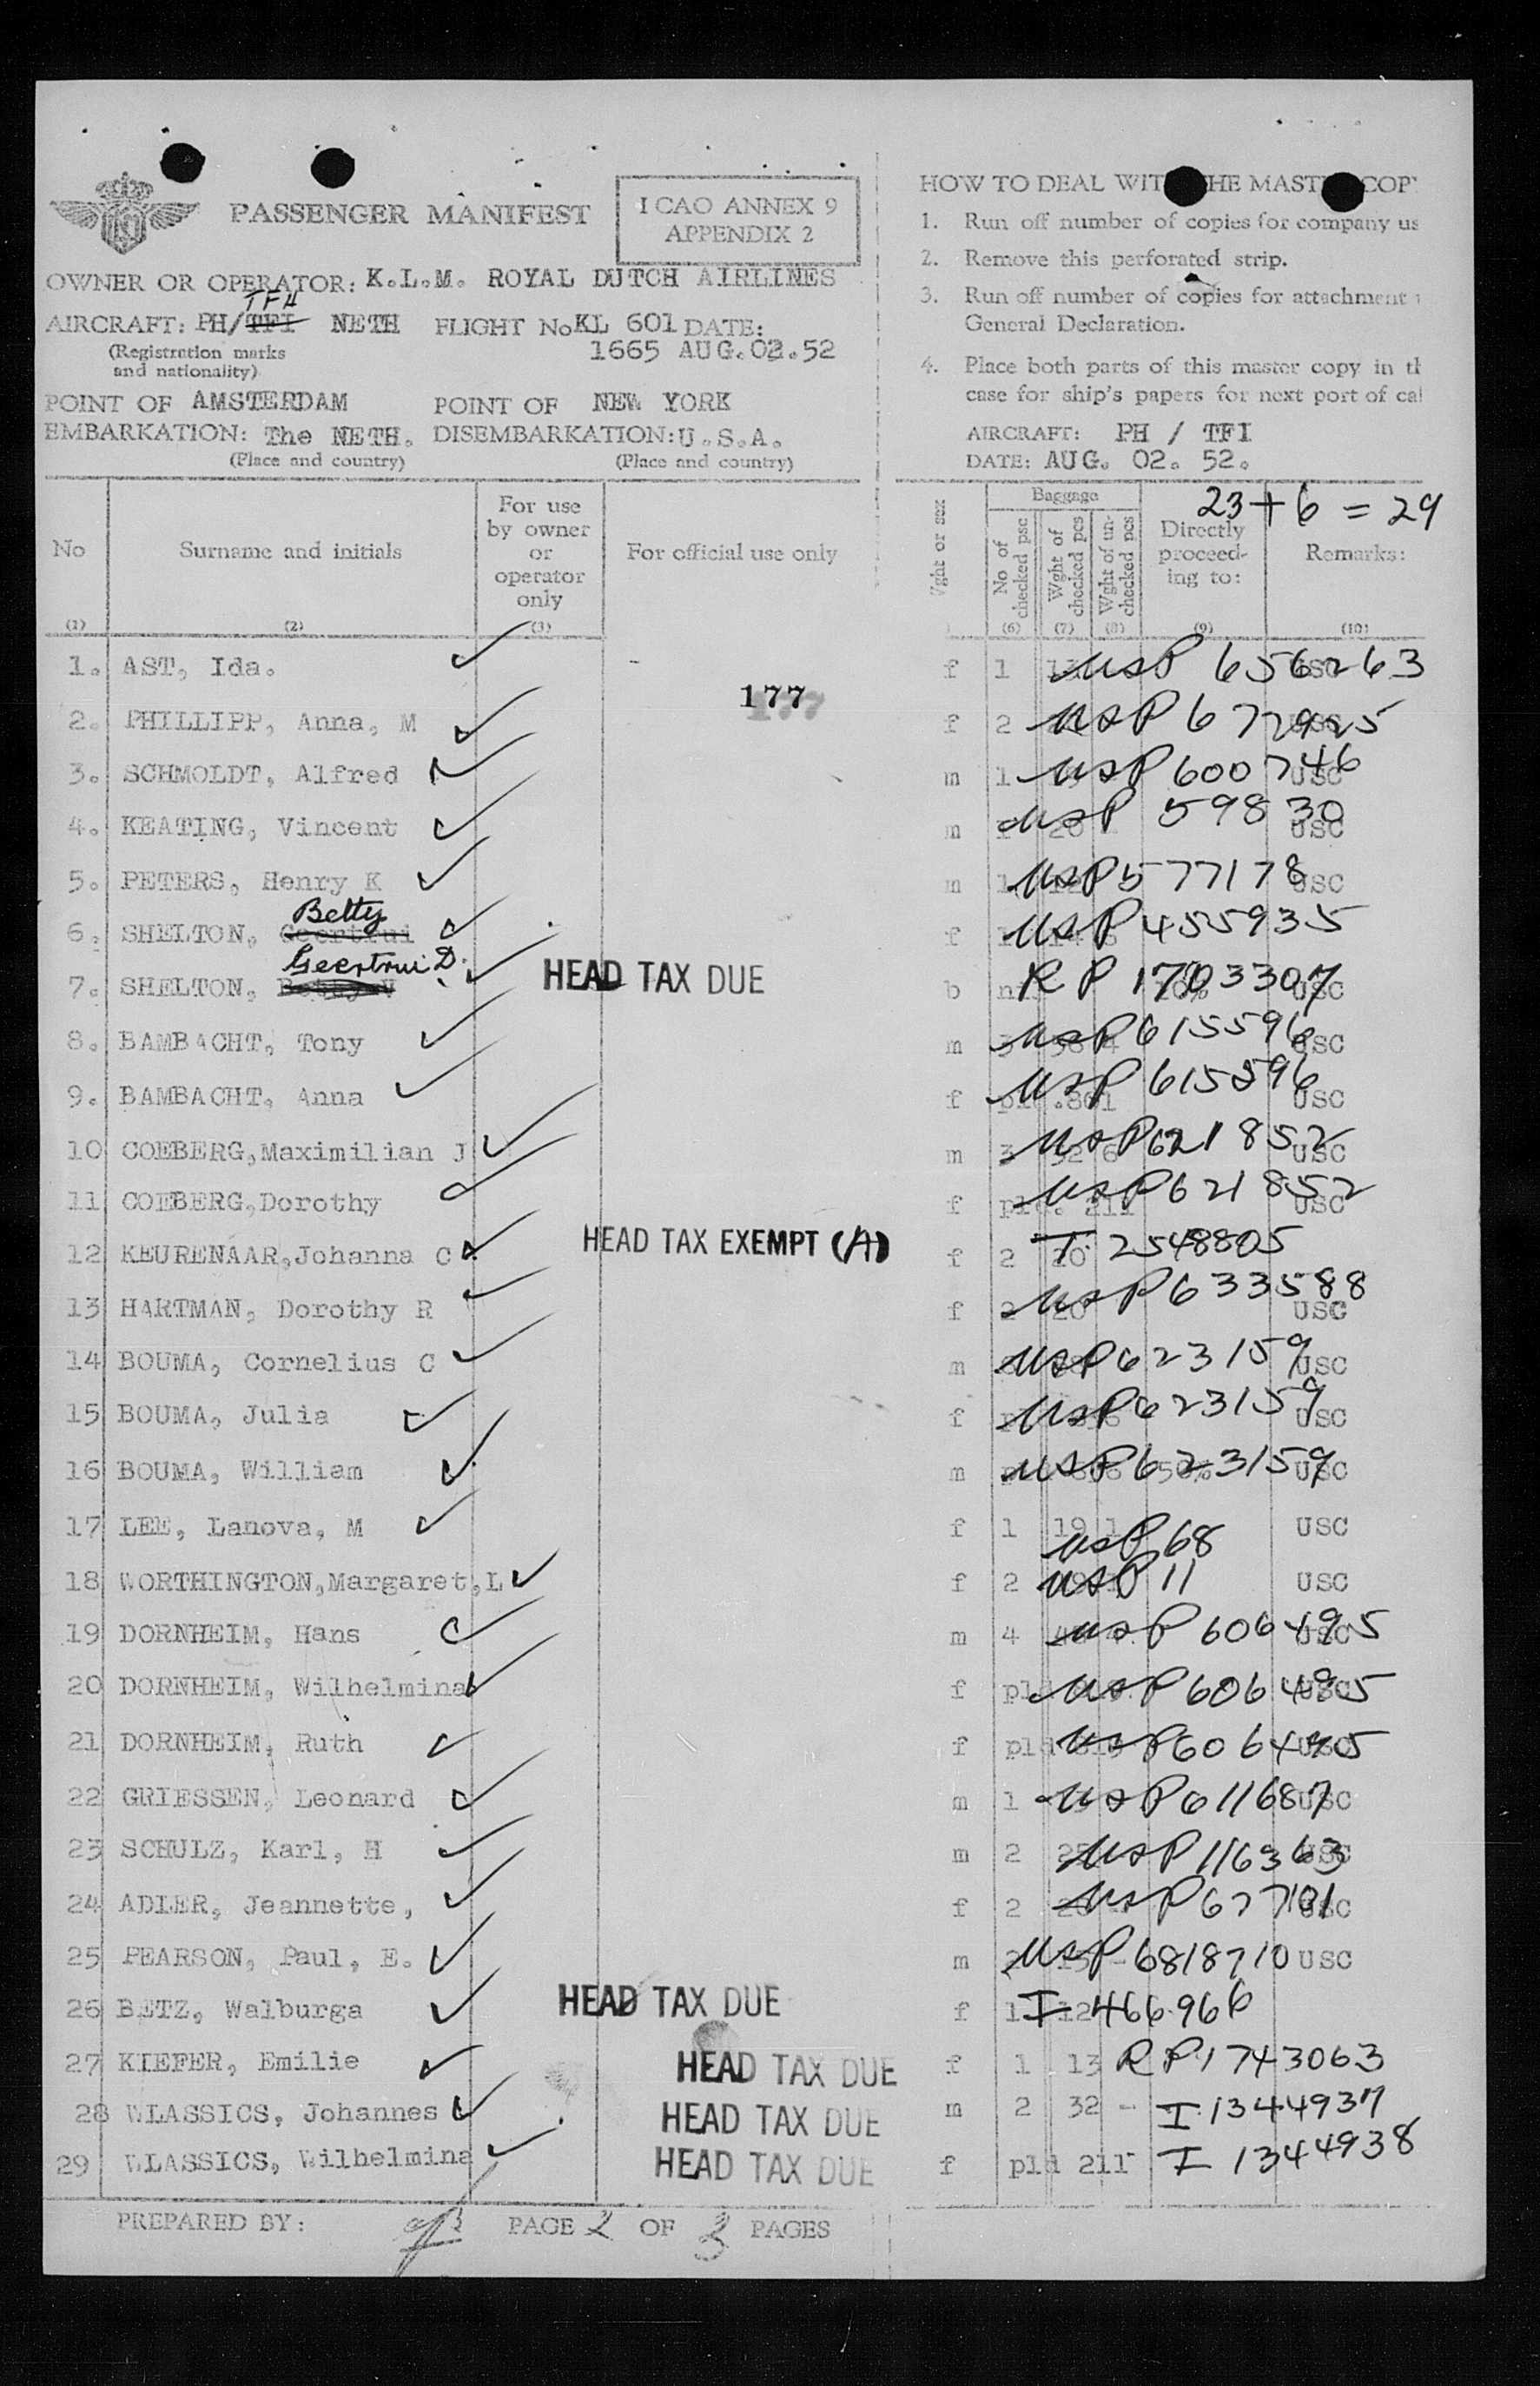 PASSENGER MANIFEST
ICAO ANNEX 9
APPENDIX 2
OWNER OR OPERATOR: K.L.M. ROYAL DUTCH AIRLINES
TFH
AIRCRAFT: PH/TFI NETH FLIGHT No KL 601 DATE:
(Registration marks and nationality)
1665 AUG.02.52
POINT OF EMBARKATION: AMSTERDAM The NETH.
(Place and country)
POINT OF DISEMBARKATION: NEW YORK U.S.A.
(Place and country)
HOW TO DEAL WIT HE MAST COP
1. Run off number of copies for company us
2. Remove this perforated strip.
3. Run off number of copies for attachment
General Declaration.
4. Place both parts of this master copy in th
case for ship's papers for next port of cal
AIRCRAFT: PH / TFI
DATE: AUG. 02. 52.
23 + 6 = 29
No (1)
Surname and initials (2)
For use by owner or operator only (3)
For official use only
Wght or sex
Baggage
No of checked psc (6)
Wght of checked pcs (7)
Wght of un-checked pcs (8)
Directly proceed-ing to: (9)
Remarks: (10)
1. AST, Ida. f 1 USP 656263 USC
177
2. PHILLIPP, Anna, M f 2 USP 672925 USC
3. SCHMOLDT, Alfred m 1 USP 600746 USC
4. KEATING, Vincent m USP 59830 USC
5. PETERS, Henry K m 1 USP 577178 USC
6. SHELTON, Geertrui Betty f USP 455935
7. SHELTON, Geertrui D. HEAD TAX DUE b RP 1703307 USC
8. BAMBACHT, Tony m 3 USP 615596 USC
9. BAMBACHT, Anna f USP 615596 USC
10 COEBERG, Maximilian J m 3 USP 621852 USC
11 COEBERG, Dorothy f USP 621852 USC
12 KEURENAAR, Johanna C HEAD TAX EXEMPT (A) f 2 20 T. 2548805
13 HARTMAN, Dorothy R f 2 20 USP 633588 USC
14 BOUMA, Cornelius C m USP 623159 USC
15 BOUMA, Julia f USP 623159 USC
16 BOUMA, William m USP 623159 USC
17 LEE, Lanova, M f 1 19 1 USP 68 USC
18 WORTHINGTON, Margaret, L f 2 USP 11 USC
19 DORNHEIM, Hans m 4 USP 606495 USC
20 DORNHEIM, Wilhelmina f pld USP 606495 USC
21 DORNHEIM, Ruth f pld USP 606495 USC
22 GRIESSEN, Leonard m 1 USP 611687 USC
23 SCHULZ, Karl, H m 2 USP 116363 USC
24 ADLER, Jeannette, f 2 USP 67701 USC
25 PEARSON, Paul, E. m 2 USP 6818710 USC
26 BETZ, Walburga HEAD TAX DUE f 1 12 I 466966
27 KIEFER, Emilie HEAD TAX DUE f 1 13 RP 1743063
28 WLASSICS, Johannes HEAD TAX DUE m 2 32 - I 1344937
29 WLASSICS, Wilhelmina HEAD TAX DUE f pld 211 I 1344938
PREPARED BY: PAGE 2 OF 3 PAGES